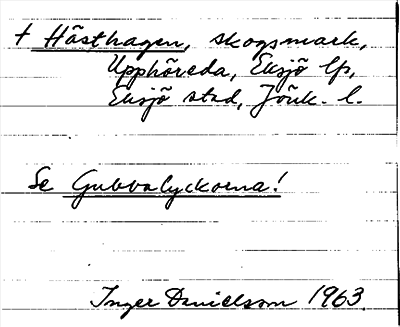 † Hästhagen, skogsmark,
Upphöreda, Eksjö lfs,
Eksjö stad, Jönk. l.
Se Gubbalyckorna!
Inger Danielsson 1963.